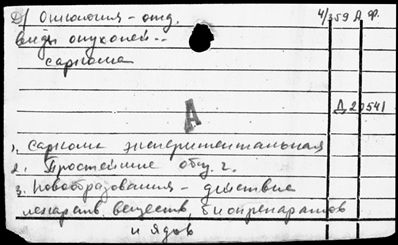 Д/ Онкология - отд. 4/359 А. Ф.
виды опухолей--
саркома
А
Д 20541
1. Саркома экспериментальная
2. Простейшие общ. г.
3. Новообразования - действие
лекарств. веществ, биопрепаратов
и ядов